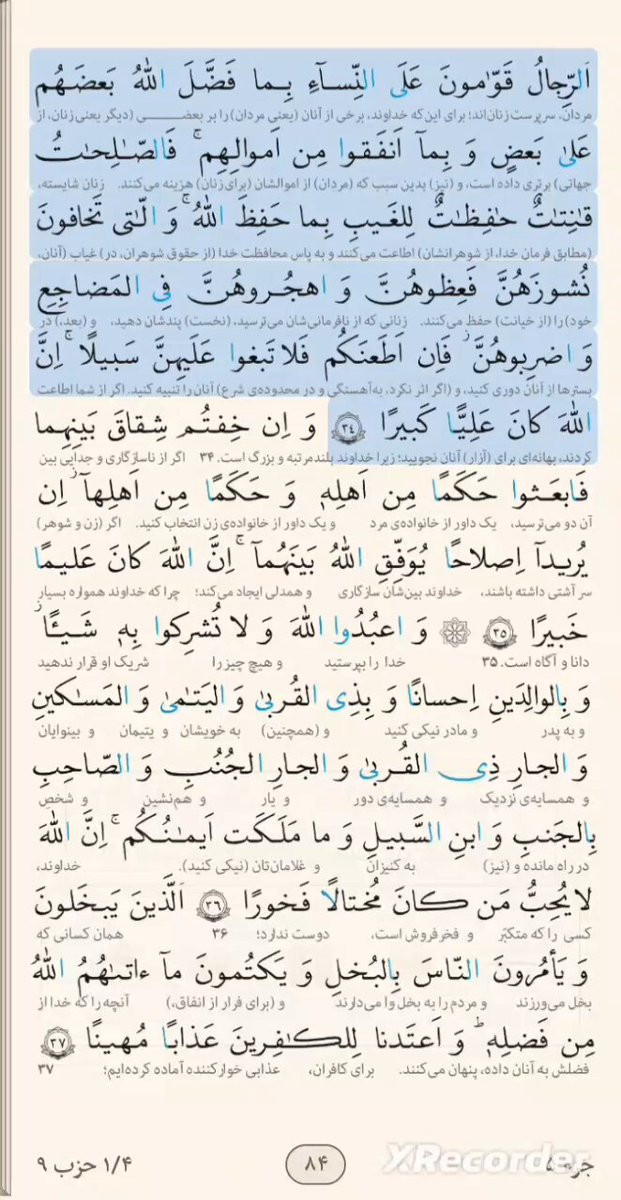 اَلرِّجالُ قَوّٰمونَ عَلَى النِّسآءِ بِما فَضَّلَ اللهُ بَعضَهُم
مردان، سرپرست زنان‌اند؛ برای این‌که خداوند، برخی از آنان (یعنی مردان) را بر بعضی (دیگر یعنی زنان، از
عَلىٰ بَعضٍ وَ بِمآ اَنفَقوا مِن اَموالِهِم ۚ فَالصّٰلِحٰتُ
جهاتی) برتری داده است، و (نیز) بدین سبب که (مردان) از اموالشان (برای زنان) هزینه می‌کنند. زنان شایسته،
قٰنِتٰتٌ حٰفِظٰتٌ لِلغَیبِ بِما حَفِظَ اللهُ ۚ وَ الّٰتی تَخافونَ
(مطابق فرمان خدا، از شوهرانشان) اطاعت می‌کنند و به پاس محافظت خدا (از حقوق شوهران، در) غیاب (آنان،
نُشوزَهُنَّ فَعِظوهُنَّ وَ اهجُروهُنَّ فِی المَضاجِعِ
خود) را (از خیانت) حفظ می‌کنند. زنانی که از نافرمانی‌شان می‌ترسید، (نخست) پندشان دهید، و (بعد،) در
وَ اضرِبوهُنَّ ۖ فَاِن اَطَعنَکُم فَلا تَبغوا عَلَیهِنَّ سَبیلًا ۚ اِنَّ
بسترها از آنان دوری کنید، و (اگر اثر نکرد، به‌آهستگی و در محدوده‌ی شرع) آنان را تنبیه کنید. اگر از شما اطاعت
اللهَ کانَ عَلِیًّا کَبیرًا ﴿۳۴﴾ وَ اِن خِفتُم شِقاقَ بَینِهِما
کردند، بهانه‌ای برای (آزار) آنان نجویید؛ زیرا خداوند بلندمرتبه و بزرگ است. ۳۴ اگر از ناسازگاری و جدایی بین
فَابعَثوا حَکَمًا مِن اَهلِهٖ وَ حَکَمًا مِن اَهلِهآ ۖ اِن
آن دو می‌ترسید، یک داور از خانواده‌ی مرد و یک داور از خانواده‌ی زن انتخاب کنید. اگر (زن و شوهر)
یُریدآ اِصلاحًا یُوَفِّقِ اللهُ بَینَهُمآ ۚ اِنَّ اللهَ کانَ عَلیمًا
سر آشتی داشته باشند، خداوند بین‌شان سازگاری و همدلی ایجاد می‌کند؛ چرا که خداوند همواره بسیار
خَبیرًا ﴿۳۵﴾ وَ اعبُدُوا اللهَ وَ لا تُشرِکوا بِهٖ شَیـًٔا ۖ
دانا و آگاه است. ۳۵ خدا را بپرستید و هیچ چیز را شریک او قرار ندهید
وَ بِالوالِدَینِ اِحسانًا وَ بِذِی القُربىٰ وَ الیَتٰمىٰ وَ المَسٰکینِ
و به پدر و مادر نیکی کنید و (همچنین) به خویشان و یتیمان و بینوایان
وَ الجارِ ذِی القُربىٰ وَ الجارِ الجُنُبِ وَ الصّاحِبِ
و همسایه‌ی نزدیک و همسایه‌ی دور و یار و هم‌نشین و شخصِ
بِالجَنبِ وَ ابنِ السَّبیلِ وَ ما مَلَکَت اَیمٰنُکُم ۚ اِنَّ اللهَ
در راه مانده و (نیز) به کنیزان و غلامان‌تان (نیکی کنید). خداوند،
لا یُحِبُّ مَن کانَ مُختالًا فَخورًا ﴿۳۶﴾ اَلَّذینَ یَبخَلونَ
کسی را که متکبّر و فخرفروش است، دوست ندارد؛ ۳۶ همان کسانی که
وَ یَأمُرونَ النّاسَ بِالبُخلِ وَ یَکتُمونَ مآ ءاتىٰهُمُ اللهُ
بخل می‌ورزند و مردم را به بخل وا می‌دارند و (برای فرار از انفاق،) آنچه را که خدا از
مِن فَضلِهٖ ۗ وَ اَعتَدنا لِلکٰفِرینَ عَذابًا مُهینًا ﴿۳۷﴾
فضلش به آنان داده، پنهان می‌کنند. برای کافران، عذابی خوارکننده آماده کرده‌ایم؛ ۳۷
جزء ۵ ۸۴ ۱/۴ حزب ۹
XRecorder